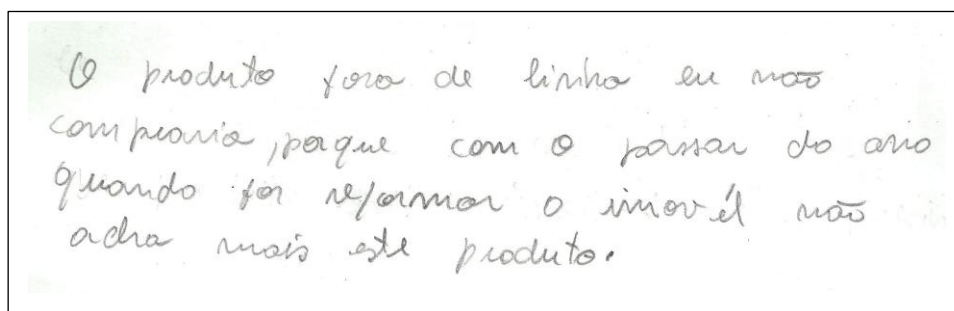 O produto fora de linha eu não
compraria, porque com o passar do ano
quando for reformar o imovél não
acha mais este produto.